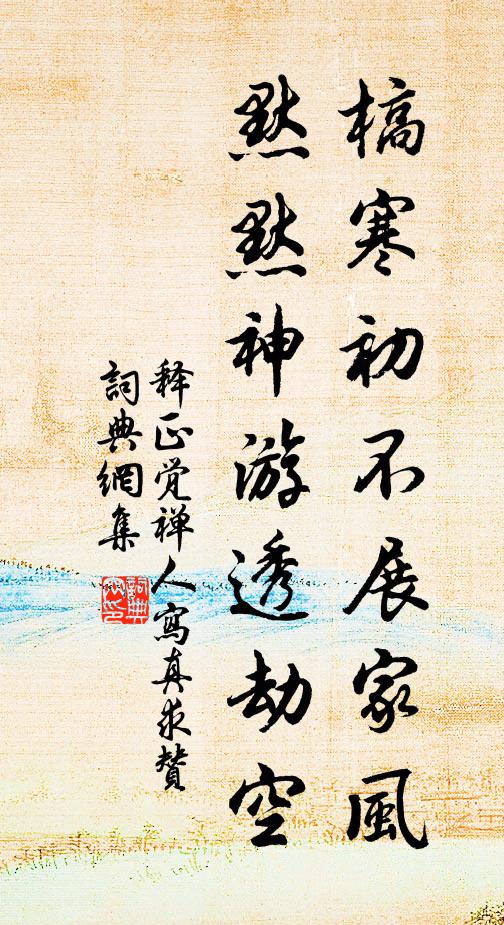 槁寒初不展家風
默默神游透劫空
释正觉禅人寫真求贊
詞典網集